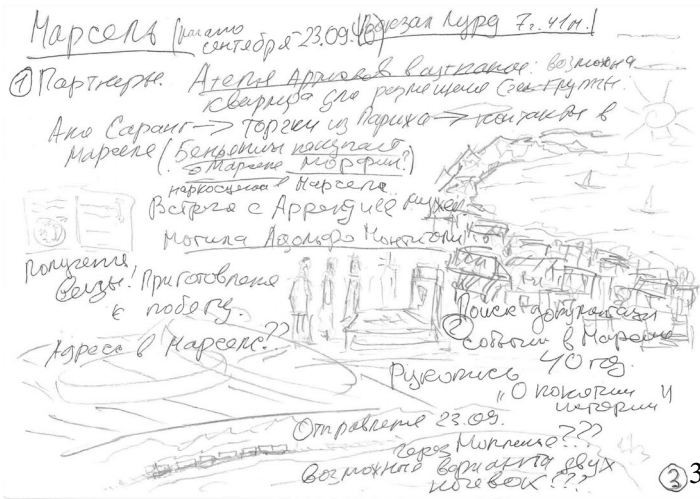 Марсель (начало сентября - 23.09.) (вокзал Лурд 7г. 41м.)
① Партнеры. Ателье Артистов в изгнании: возможна
квартира для размещения съем. группы.
Ано Саранг → торчки из Парижа → контакты в
Марселе (Беньямин покупает
в Марселе морфий?)
наркосцена в Марселе.
Встреча с Аррендије
Могила Адольфо
Получение
визы!
Приготовления
к побегу.
Адреса в Марселе??
② Поиск документации
событий в Марселе
40 год.
Рукопись
„О понятии
истории"
Отправление 23.09.
через Монпелье???
Возможные варианты двух
ночевок???
③ 3